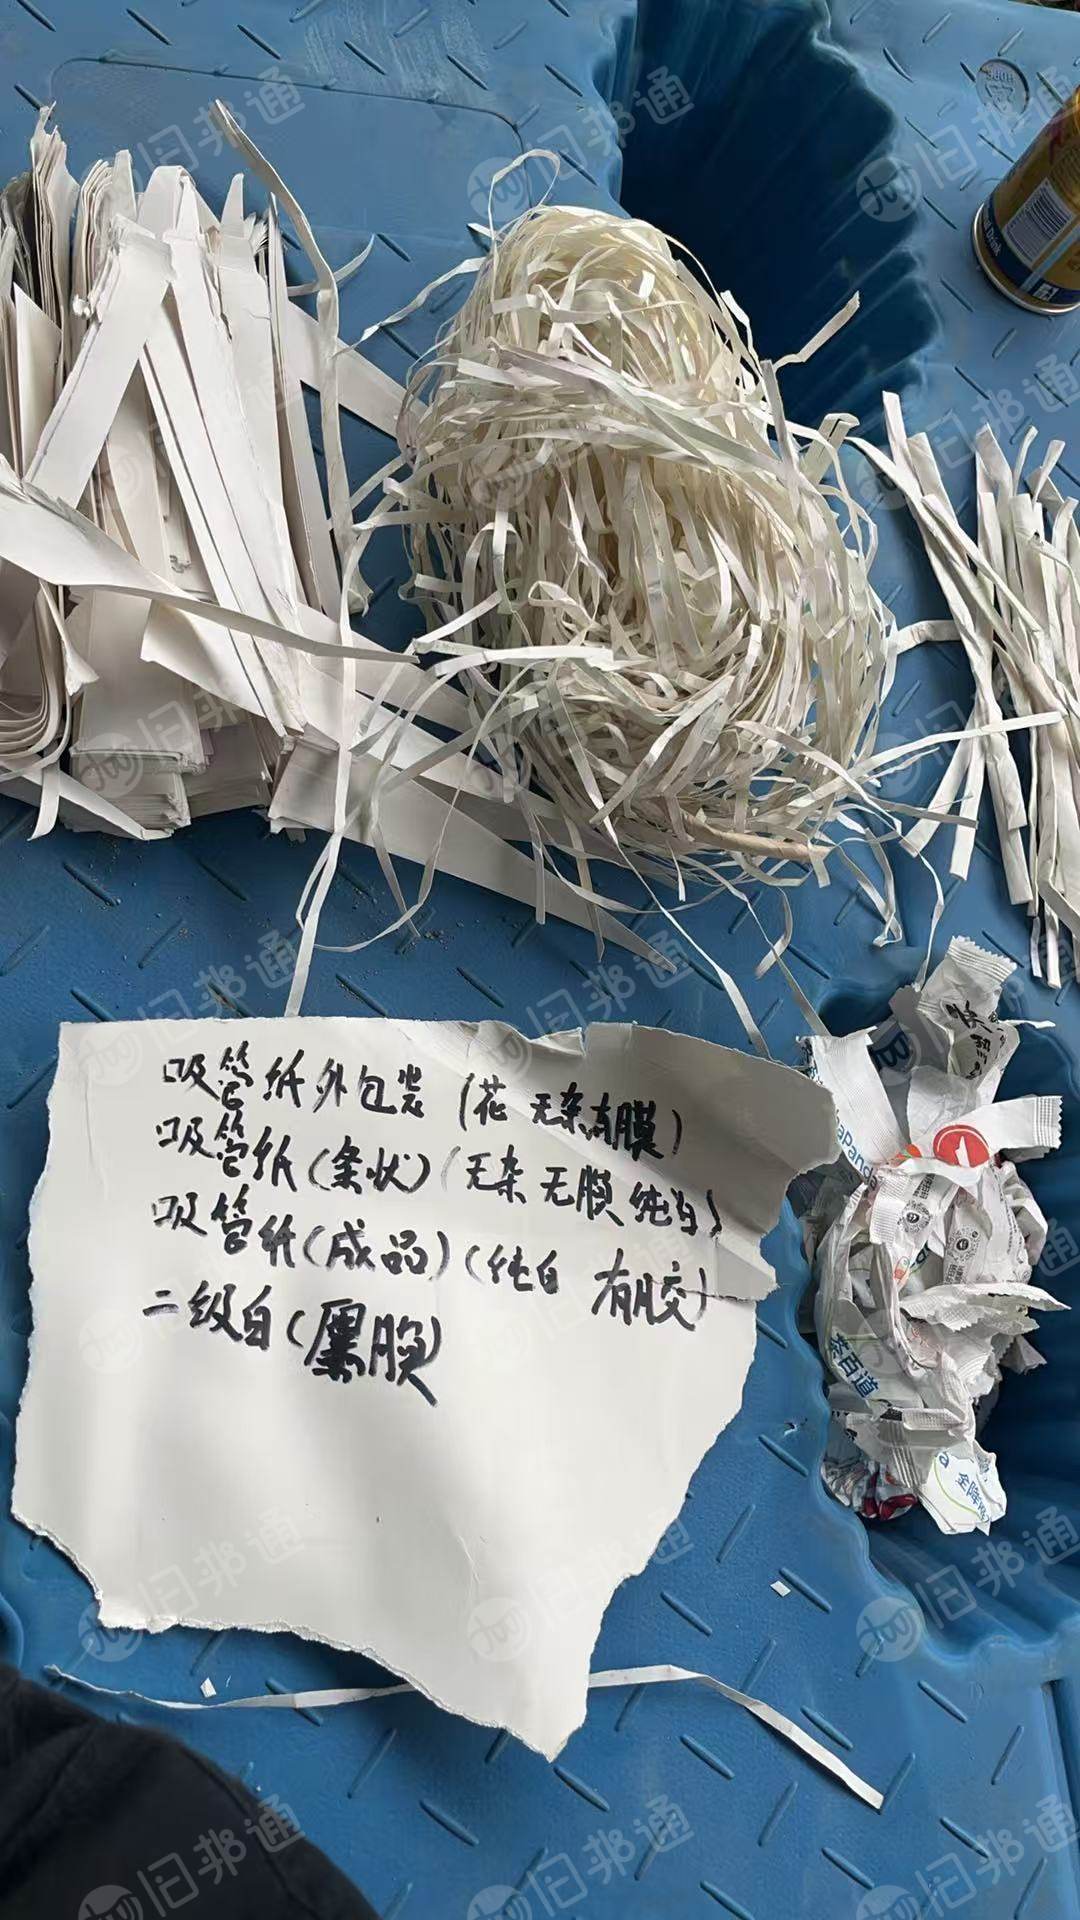 HDPE
Drink
吸管纸外包装(花 无杂有膜)
吸管纸(条状)(无杂 无膜 纯白)
吸管纸(成品)(纯白 有胶)
二级白(厚膜)
茶百道
旧邦通